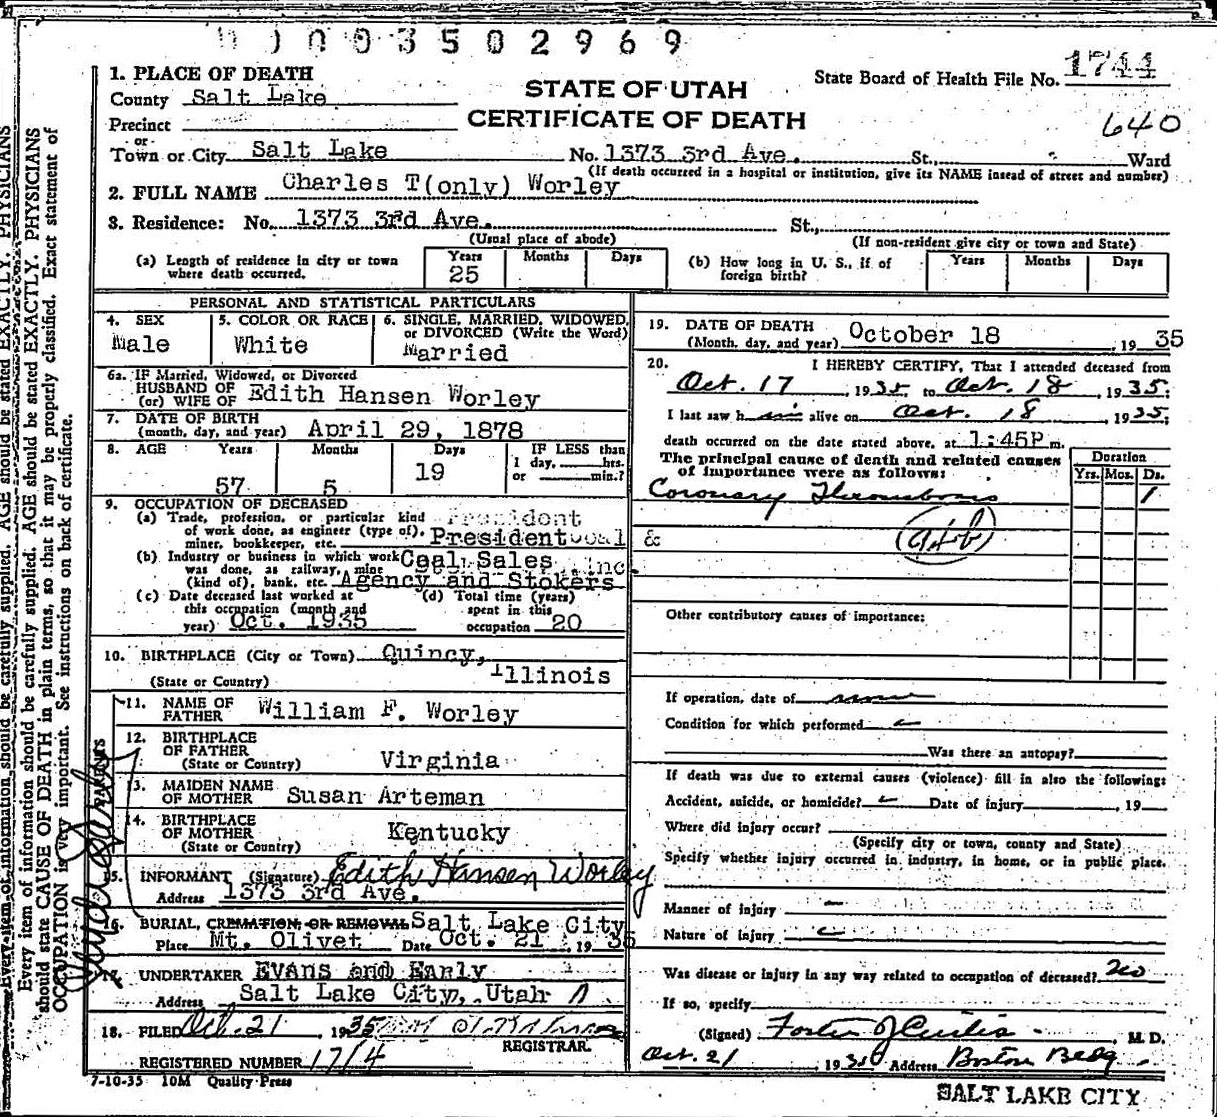 0003502969
1. PLACE OF DEATH
County Salt Lake
STATE OF UTAH
CERTIFICATE OF DEATH
State Board of Health File No. 1744
640
Precinct
or
Town or City Salt Lake No. 1373 3rd Ave. St., Ward
(If death occurred in a hospital or institution, give its NAME insead of street and number)
2. FULL NAME Charles T(only) Worley
3. Residence: No. 1373 3rd Ave. St.,
(Usual place of abode) (If non-resident give city or town and State)
(a) Length of residence in city or town where death occurred. Years 25 Months Days
(b) How long in U. S., if of foreign birth? Years Months Days
PERSONAL AND STATISTICAL PARTICULARS
4. SEX Male
5. COLOR OR RACE White
6. SINGLE, MARRIED, WIDOWED, or DIVORCED (Write the Word) Married
6a. IF Married, Widowed, or Divorced
HUSBAND OF
(or) WIFE OF Edith Hansen Worley
7. DATE OF BIRTH
(month, day, and year) April 29, 1878
8. AGE Years 57 Months 5 Days 19 IF LESS than 1 day, hrs. or min.?
9. OCCUPATION OF DECEASED
(a) Trade, profession, or particular kind of work done, as engineer (type of), miner, bookkeeper, etc. President
(b) Industry or business in which work was done, as railway, mine (kind of), bank, etc. Coal Sales Agency and Stokers Inc.
Coal &
(c) Date deceased last worked at this occupation (month and year) Oct. 1935
(d) Total time (years) spent in this occupation 20
10. BIRTHPLACE (City or Town) Quincy,
(State or Country) Illinois
11. NAME OF FATHER William F. Worley
12. BIRTHPLACE OF FATHER
(State or Country) Virginia
13. MAIDEN NAME OF MOTHER Susan Arteman
14. BIRTHPLACE OF MOTHER
(State or Country) Kentucky
15. INFORMANT (Signature) Edith Hansen Worley
Address 1373 3rd Ave.
16. BURIAL, CREMATION OR REMOVAL Salt Lake City
Place Mt. Olivet Date Oct. 21, 1935
17. UNDERTAKER Evans and Early
Address Salt Lake City, Utah
18. FILED Oct. 21, 1935
REGISTRAR.
REGISTERED NUMBER 1714
7-10-35 10M Quality Press
19. DATE OF DEATH
(Month, day, and year) October 18, 1935
20. I HEREBY CERTIFY, That I attended deceased from
Oct. 17, 1935, to Oct. 18, 1935;
I last saw him alive on Oct. 18, 1935;
death occurred on the date stated above, at 1:45P m.
The principal cause of death and related causes of importance were as follows:
Duration
Yrs. Mos. Ds.
Coronary Thrombosis 1
Other contributory causes of importance:
If operation, date of none
Condition for which performed
Was there an autopsy?
If death was due to external causes (violence) fill in also the following:
Accident, suicide, or homicide? Date of injury , 19
Where did injury occur?
(Specify city or town, county and State)
Specify whether injury occurred in industry, in home, or in public place.
Manner of injury
Nature of injury
Was disease or injury in any way related to occupation of deceased? No
If so, specify
(Signed) Foster J Curtis M. D.
Oct. 21 1935 Address Boston Bldg
SALT LAKE CITY
Every item of information should be carefully supplied. AGE should be stated EXACTLY. PHYSICIANS
should state CAUSE OF DEATH in plain terms, so that it may be properly classified. Exact statement of
OCCUPATION is very important. See instructions on back of certificate.
PARENTS